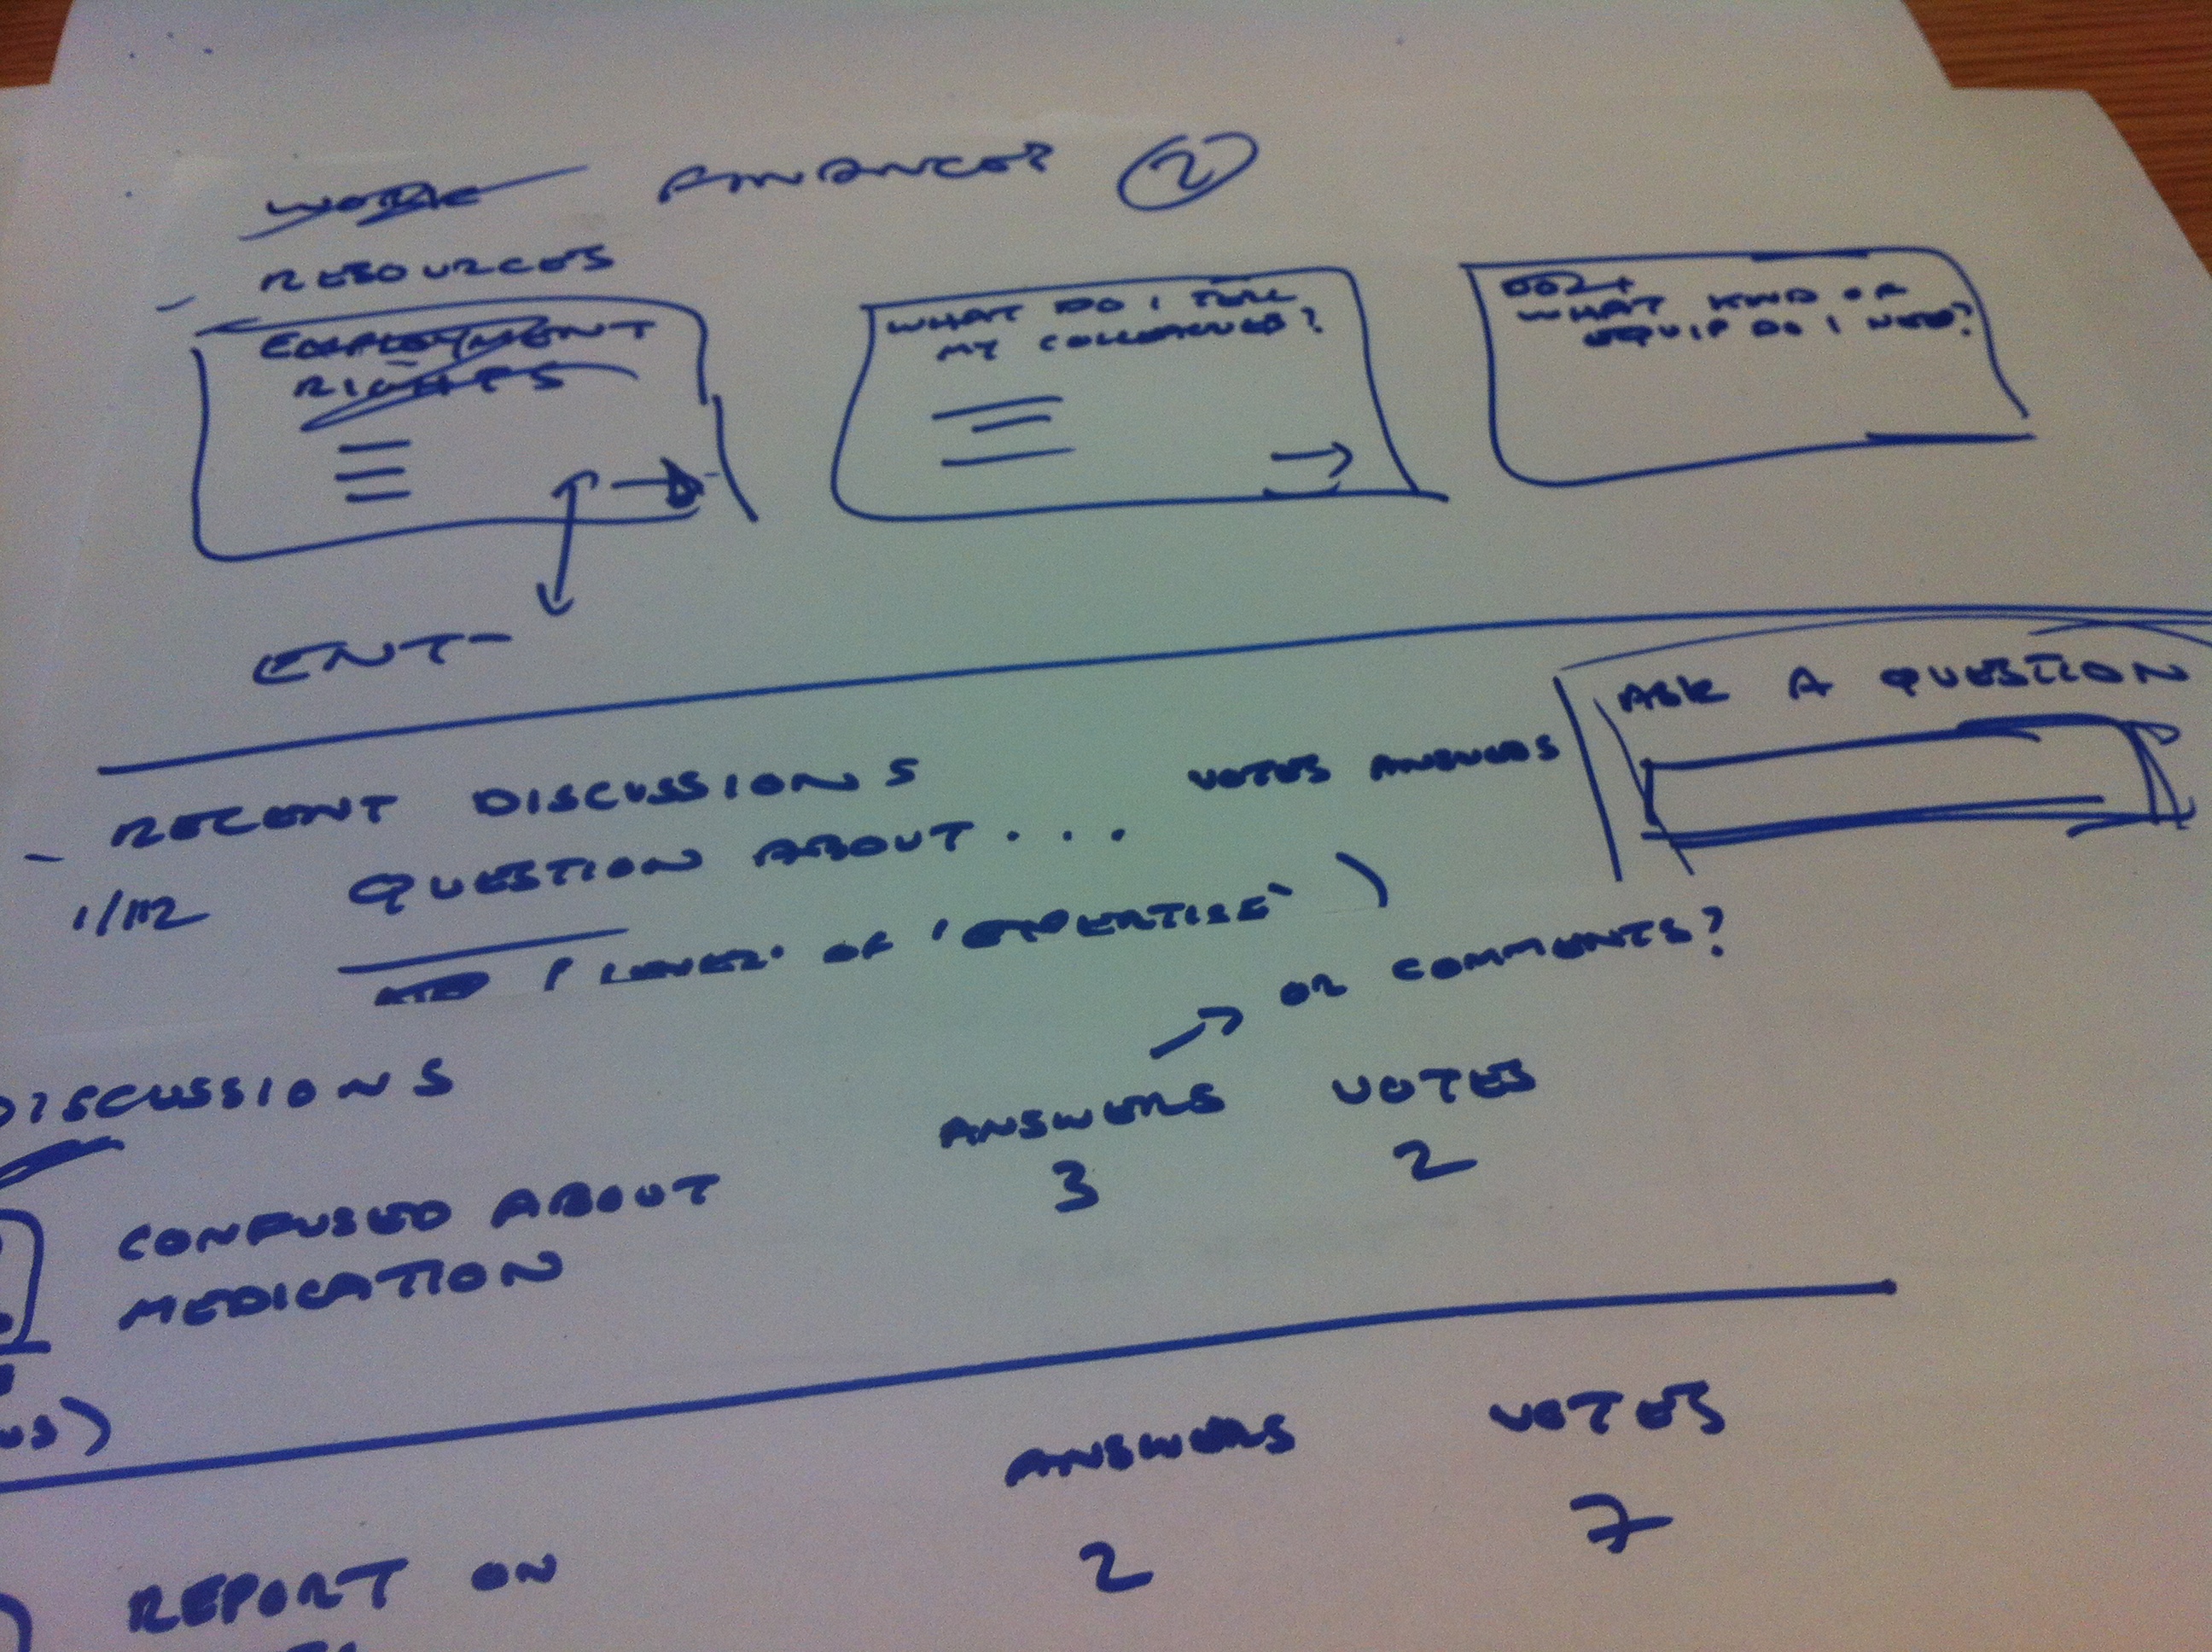 WORK FINANCES 2
RESOURCES
EMPLOYMENT
RIGHTS
WHAT DO I TELL
MY COLLEAGUES?
WHAT KIND OF
EQUIP DO I NEED?
ENT-
ASK A QUESTION
- RECENT DISCUSSIONS VOTES ANSWERS
QUESTION ABOUT...
OF 'EXPERTISE')
OR COMMENTS?
DISCUSSIONS
ANSWERS VOTES
3 2
CONFUSED ABOUT
MEDICATION
ANSWERS VOTES
2 7
REPORT ON